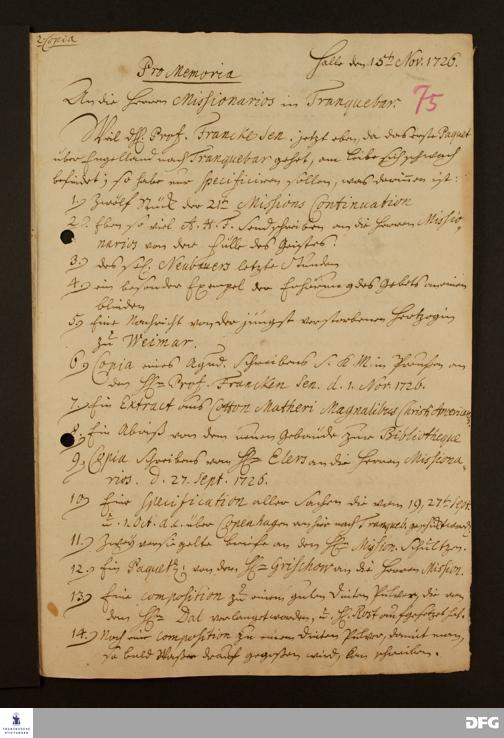 2. Copia
Halle den 15ten Nov. 1726.
Pro Memoria
An die Herren Missionarios in Tranquebar.
75
Weil Hl. Prof. Francke Sen. jetzt eben, da das erste Paquet
über Engelland nach Tranquebar gehet, am Leibe sich schwach
befindet; so habe nur specificiren sollen, was darinnen ist:
1.) Zwölf Stück der 21ten Missions Continuation
2.) Eben so viel A. H. F. Sendschreiben an die Herren Missio-
narios von der Fülle des Geistes.
3.) des sel. Neubauers letzte Stunden
4.) ein besonder Exempel der Erhörung des Gebets an einem
blinden
5.) Eine Nachricht von der jüngst verstorbenen Hertzogin
zu Weimar.
6.) Copia eines Schreibens S. K. M. in Preußen an
den Hn Prof. Francken Sen. d. 1. Nov. 1726.
7.) Ein Extract aus Cotton Matheri Magnalibus Christi Americanis
8.) Ein Abriß von dem neuen Gebäude zur Bibliotheque
9.) Copia Schreibens von Hn Elers an die Herren Missiona-
rios. d. 27. Sept. 1726.
10.) Eine Specification aller Sachen die vom 19, 27ten Sept.
u. 1. Oct. a. c. über Copenhagen von hier nach Tranqueb. geschickt worden
11.) Zwey versiegelte briefe an den Hn Mission. Schultzen.
12.) Ein Paquetgen von dem Hn Grischow an die Herren Mission.
13.) Eine composition zu einem guten Dinten Pulver, die von
dem Hn Dal verlanget worden, u. Hl. Rost aufgesetzet hat.
14.) Noch eine composition zu einem Dinten Pulver, damit man,
so bald Waßer drauf gegoßen wird, kan schreiben.
FRANCKESCHE
STIFTUNGEN
DFG